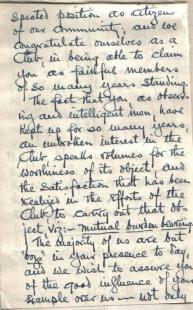 spected position as citizens
of our community; and we
congratulate ourselves as a
Club in being able to claim
you as faithful members
of so many years standing.
The fact that you, as observ-
ing and intelligent men, have
kept up for so many years
an unbroken interest in the
Club, speaks volumes for the
worthiness of its object, and
the satisfaction that has been
realized in the efforts of the
Club to carry out that ob-
ject viz:- Mutual burden bearing.
The majority of us are but
"boys" in your presence to day,
and we wish to assure you
of the good influence of your
example over us — not only